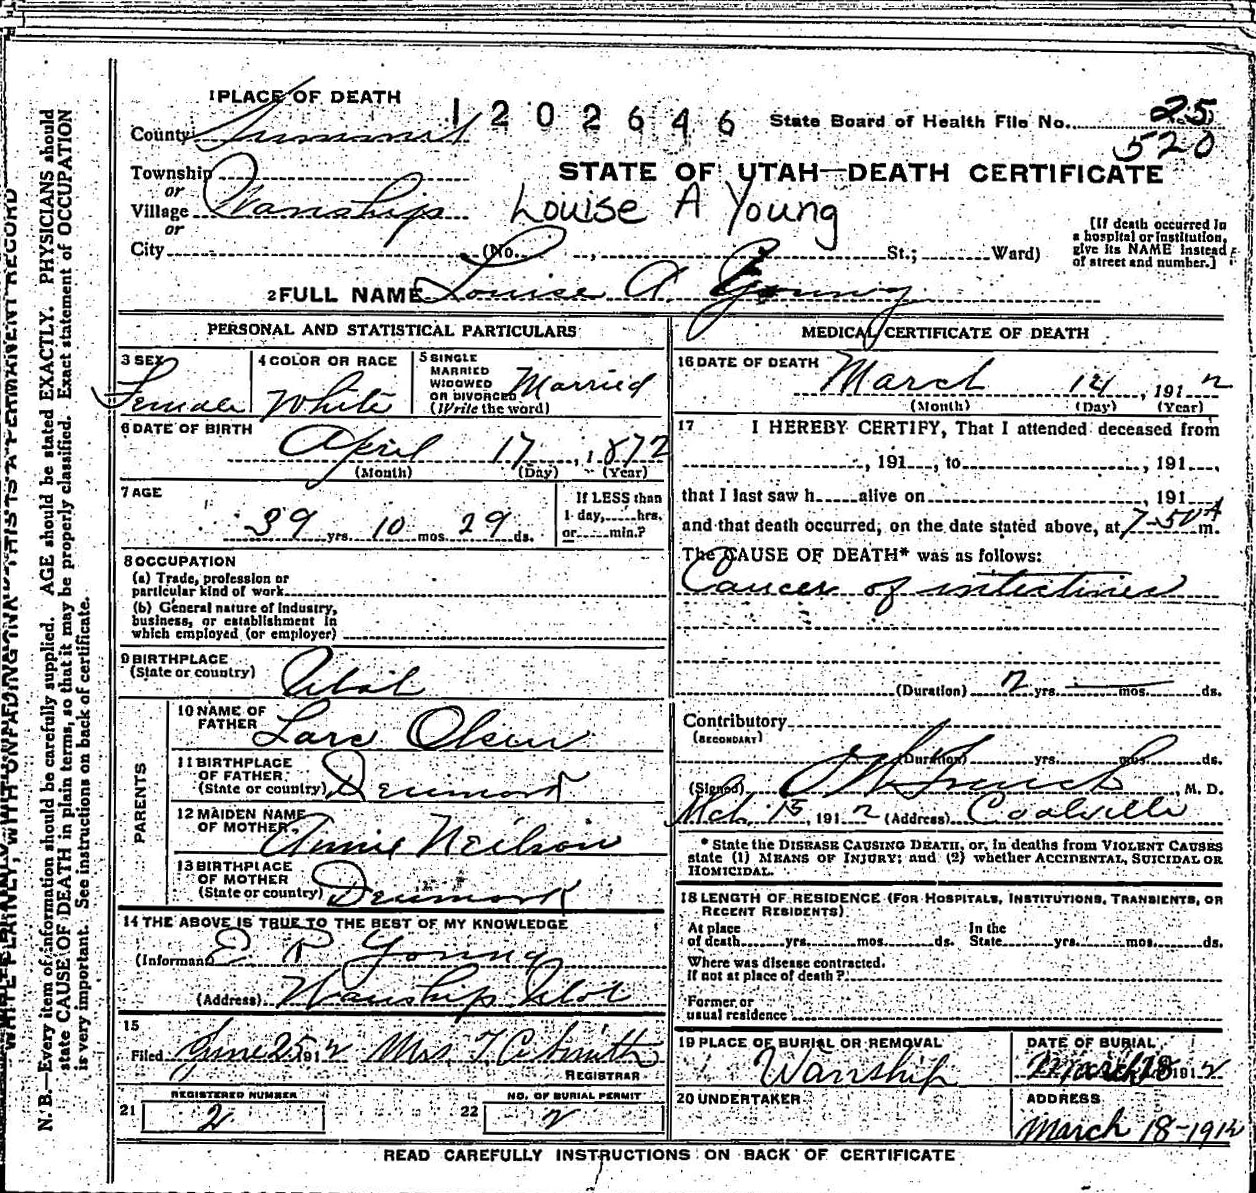 1 PLACE OF DEATH
1202646
State Board of Health File No. 25
520
County Summit
STATE OF UTAH—DEATH CERTIFICATE
Township
or
Village Wanship
Louise A Young
or
City (No. , St.; Ward)
[If death occurred in
a hospital or institution,
give its NAME instead
of street and number.]
2 FULL NAME Louise A. Young
PERSONAL AND STATISTICAL PARTICULARS
3 SEX
Female
4 COLOR OR RACE
White
5 SINGLE
MARRIED
WIDOWED
OR DIVORCED
(Write the word)
Married
6 DATE OF BIRTH
April 17, 1872
(Month) (Day) (Year)
7 AGE
39 yrs. 10 mos. 29 ds.
If LESS than
1 day, hrs.
or min.?
8 OCCUPATION
(a) Trade, profession or
particular kind of work
(b) General nature of industry,
business, or establishment in
which employed (or employer)
9 BIRTHPLACE
(State or country) Utah
PARENTS
10 NAME OF
FATHER Lars Olsen
11 BIRTHPLACE
OF FATHER
(State or country) Denmark
12 MAIDEN NAME
OF MOTHER Annie Neilson
13 BIRTHPLACE
OF MOTHER
(State or country) Denmark
14 THE ABOVE IS TRUE TO THE BEST OF MY KNOWLEDGE
(Informant) E R Young
(Address) Wanship Utah
15
Filed June 25 1912 Mrs T C Smith
REGISTRAR
REGISTERED NUMBER
21 2
NO. OF BURIAL PERMIT
22 2
MEDICAL CERTIFICATE OF DEATH
16 DATE OF DEATH March 14, 1912
(Month) (Day) (Year)
17 I HEREBY CERTIFY, That I attended deceased from
, 191 , to , 191 ,
that I last saw h alive on , 191
and that death occurred, on the date stated above, at 7-50 A m.
The CAUSE OF DEATH* was as follows:
Cancer of intestines
(Duration) 2 yrs. mos. ds.
Contributory
(SECONDARY)
(Duration) yrs. mos. ds.
(Signed) M. D.
Mch. 15, 1912 (Address) Coalville
* State the DISEASE CAUSING DEATH, or, in deaths from VIOLENT CAUSES
state (1) MEANS OF INJURY; and (2) whether ACCIDENTAL, SUICIDAL OR
HOMICIDAL.
18 LENGTH OF RESIDENCE (FOR HOSPITALS, INSTITUTIONS, TRANSIENTS, OR
RECENT RESIDENTS)
At place
of death yrs. mos. ds.
In the
State yrs. mos. ds.
Where was disease contracted.
If not at place of death?
Former or
usual residence
19 PLACE OF BURIAL OR REMOVAL
Wanship
DATE OF BURIAL
March 18 1912
20 UNDERTAKER
ADDRESS
March 18-1912
READ CAREFULLY INSTRUCTIONS ON BACK OF CERTIFICATE
WRITE PLAINLY, WITH UNFADING INK—THIS IS A PERMANENT RECORD
N. B.—Every item of information should be carefully supplied. AGE should be stated EXACTLY. PHYSICIANS should
state CAUSE OF DEATH in plain terms, so that it may be properly classified. Exact statement of OCCUPATION
is very important. See instructions on back of certificate.